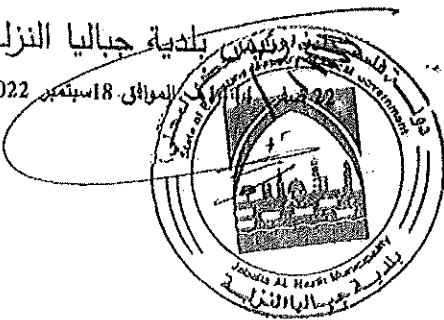 رئيس بلدية جباليا النزلة
22 الموافق 18 سبتمبر 2022
دولة فلسطين
State of Palestine Ministry of Local Government
Jabalia Al Nazla Municipality
بلدية جباليا النزلة